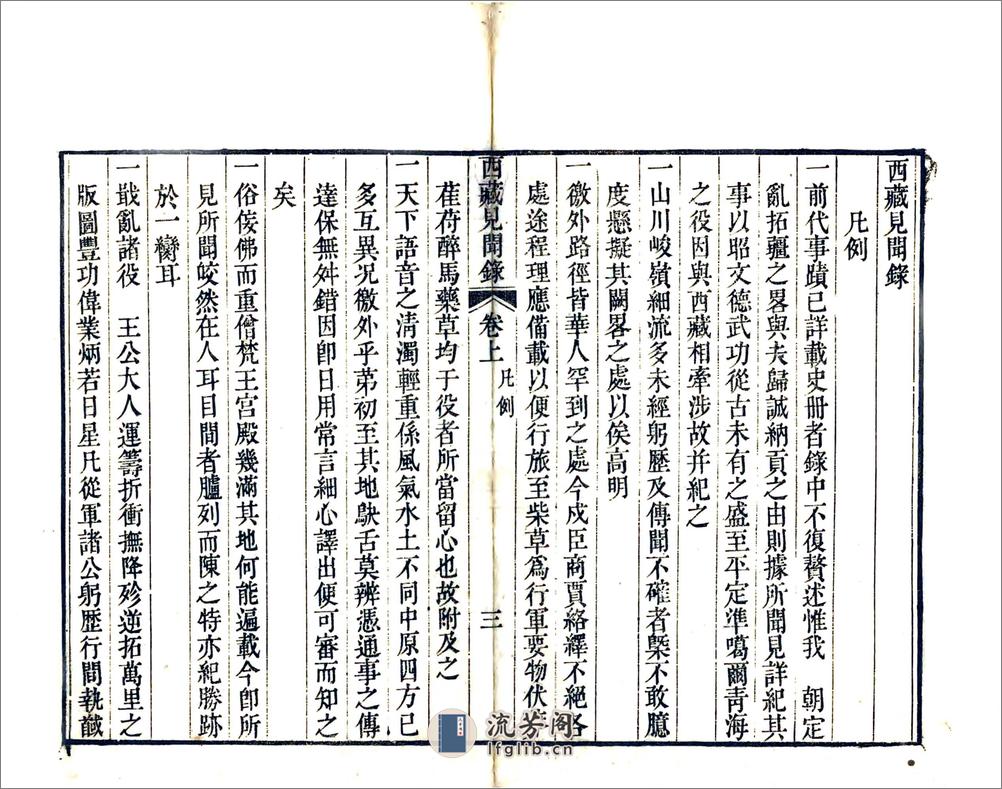 西藏見聞錄
凡例
一前代事蹟已詳載史册者錄中不復贅述惟我 朝定
亂拓疆之畧與夫歸誠納貢之由則據所聞見詳紀其
事以昭文德武功從古未有之盛至平定準噶爾青海
之役因與西藏相牽涉故并紀之
一山川峻嶺細流多未經躬歷及傳聞不確者槩不敢臆
度懸擬其闕畧之處以俟高明
一徼外路徑皆華人罕到之處今戍臣商賈絡繹不絕各
處途程理應備載以便行旅至柴草爲行軍要物伏
西藏見聞錄 卷上 凡例 三
萑苻醉馬藥草均于役者所當留心也故附及之
一天下語音之清濁輕重係風氣水土不同中原四方已
多互異况徼外乎第初至其地鴃舌莫辨憑通事之傳
達保無舛錯因卽日用常言細心譯出便可審而知之
矣
一俗侫佛而重僧梵王宮殿幾滿其地何能遍載今卽所
見所聞皎然在人耳目間者臚列而陳之特亦紀勝跡
於一臠耳
一戡亂諸役 王公大人運籌折衝撫降殄逆拓萬里之
版圖豐功偉業炳若日星凡從軍諸公躬歷行間執馘
流芳阁
lfglib.cn